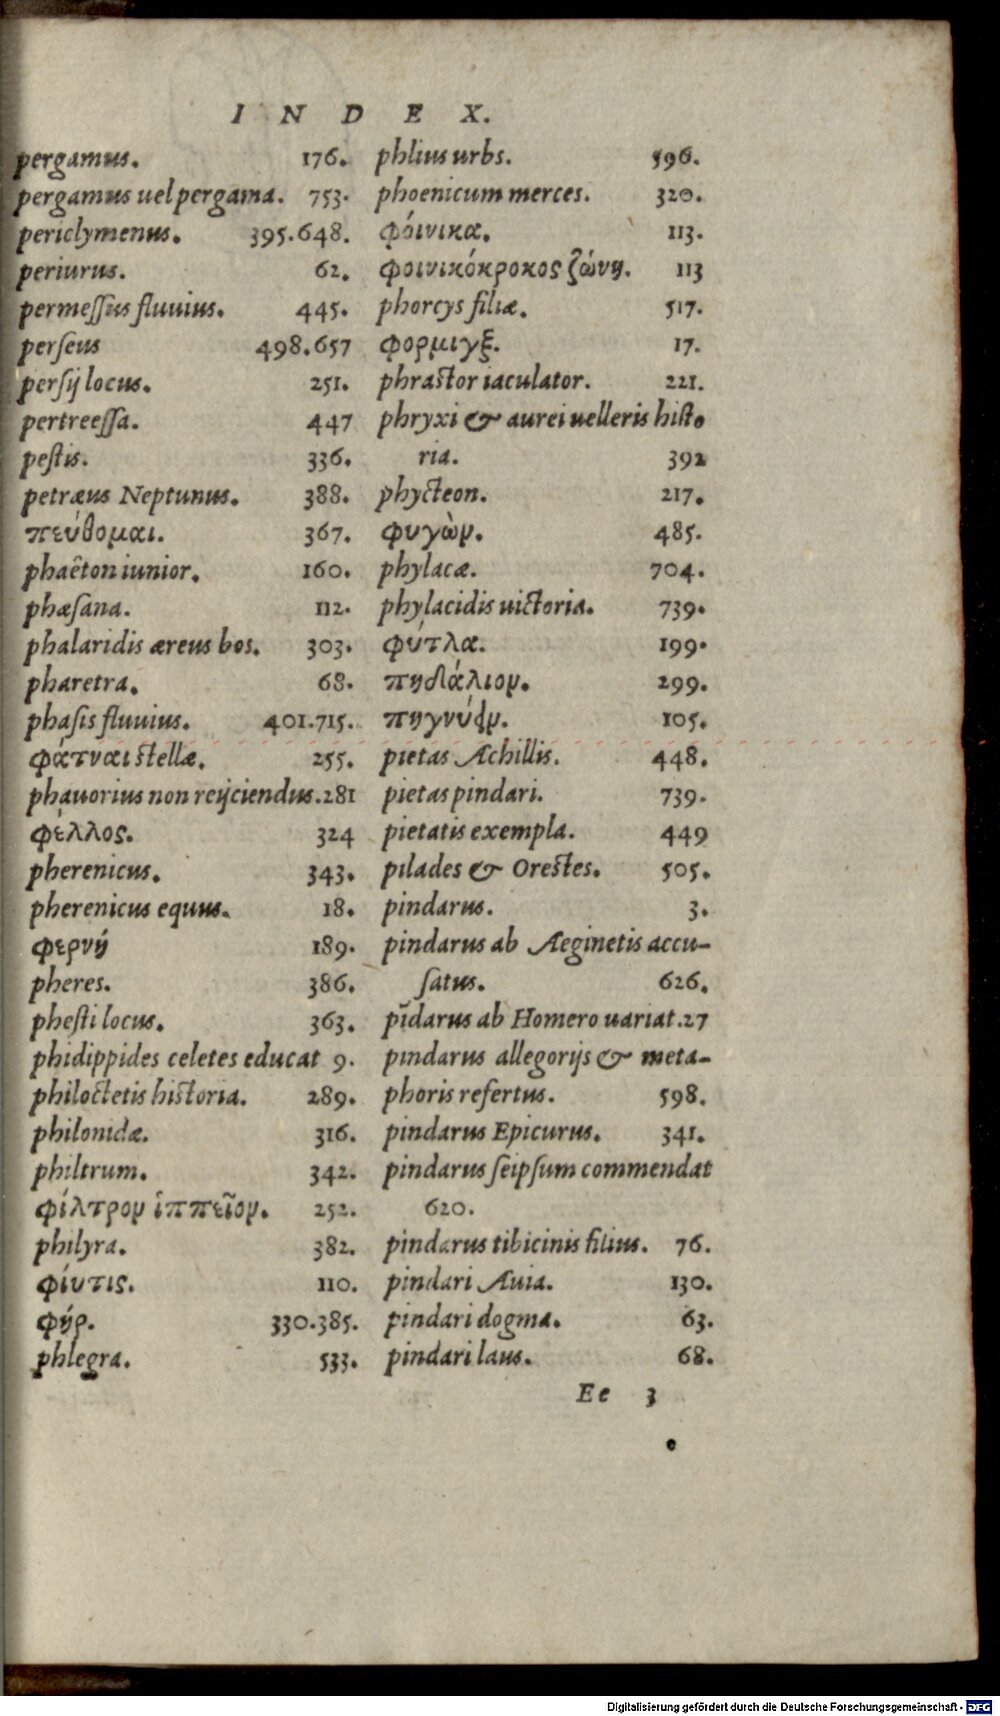 INDEX.
pergamus. 176.
pergamus uel pergama. 753.
periclymenus. 395.648.
periurus. 62.
permessus fluuius. 445.
perseus 498.657
persij locus. 251.
pertreessa. 447
pestis. 336.
petræus Neptunus. 388.
πεύθομαι. 367.
phaêton iunior. 160.
phæsana. 112.
phalaridis æreus bos. 303.
pharetra. 68.
phasis fluuius. 401.715.
φάτναι stellæ. 255.
phauorius non reijciendus. 281
φέλλος. 324
pherenicus. 343.
pherenicus equus. 18.
φερνή 189.
pheres. 386.
phesti locus. 363.
phidippides celetes educat 9.
philoctetis historia. 289.
philonidæ. 316.
philtrum. 342.
φίλτρον ἱππεῖον. 252.
philyra. 382.
φίντις. 110.
φήρ. 330.385.
phlegra. 533.
phlius urbs. 596.
phoenicum merces. 320.
φόινικα. 113.
φοινικόκροκος ζώνη. 113
phorcys filiæ. 517.
φορμιγξ. 17.
phrastor iaculator. 221.
phryxi & aurei uelleris histo
ria. 392
phycteon. 217.
φυγὼν. 485.
phylacæ. 704.
phylacidis uictoria. 739.
φύτλα. 199.
πηδάλιον. 299.
105.
pietas Æchillis. 448.
pietas pindari. 739.
pietatis exempla. 449
pilades & Orestes. 505.
pindarus. 3.
pindarus ab Æginetis accu-
satus. 626.
pīdarus ab Homero uariat. 27
pindarus allegorijs & meta-
phoris refertus. 598.
pindarus Epicurus. 341.
pindarus seipsum commendat
620.
pindarus tibicinis filius. 76.
pindari Auia. 130.
pindari dogma. 63.
pindari laus. 68.
Ee 3
Digitalisierung gefördert durch die Deutsche Forschungsgemeinschaft - DFG